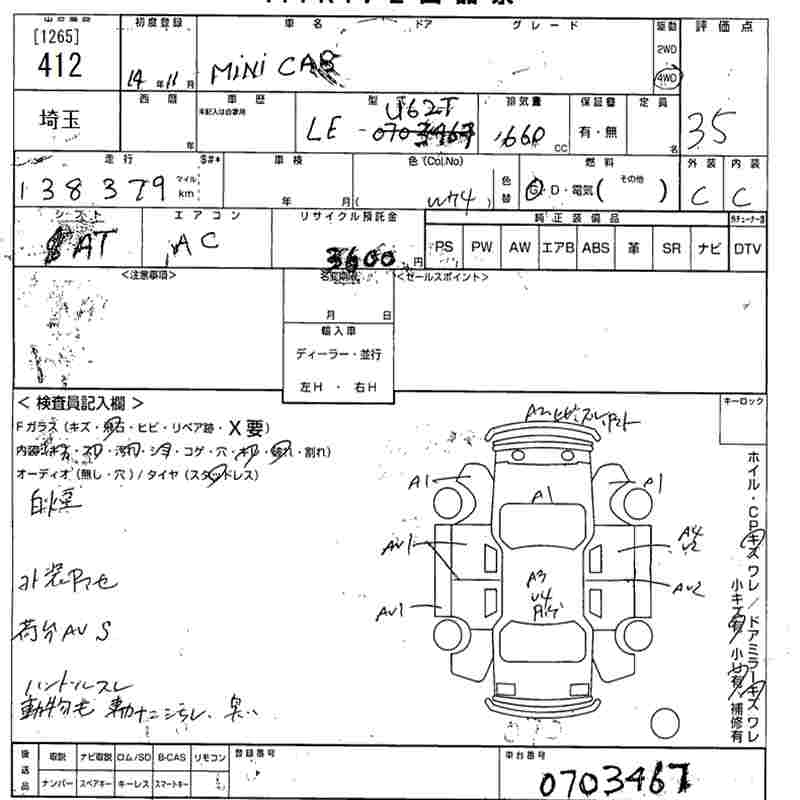 初度登録 車名 ドア グレード 駆動 評価点
[1265]
412
14年11月
MINI CAB
2WD
4WD
35
埼玉
西暦 車歴 型 排気量 保証書 定員
未記入は自家用
年
LE - U62T
660 CC
有・無
名
走行 車検 色(Col.No) 燃料 外装 内装
138379
マイル
km
年 月
色替
G・D・電気( その他 )
C C
シフト エアコン リサイクル預託金 純正装備品
AT
AC
3600円
PS PW AW エアB ABS 革 SR ナビ DTV
<注意事項> 名変期限 <セールスポイント>
月 日
輸入車
ディーラー・並行
左H ・ 右H
<検査員記入欄>
キーロック
Fガラス(キズ・飛石・ヒビ・リペア跡・X要)
内装(キズ・スリ・汚れ・シミ・コゲ・穴・キレ・破れ・割れ)
オーディオ(無し・穴)/タイヤ(スタッドレス)
白煙
A1 A1
A1
AV1
A4
A3
U4
AV1
AV2
ハンドルスレ
ホイル・CPキズ ワレ/ドアミラーキズ ワレ
小キズ有 小凹有 補修有
後送品
取説 ナビ取説 ロム/SD B-CAS リモコン
ナンバー スペアキー キーレス スマートキー
登録番号
車台番号
0703467